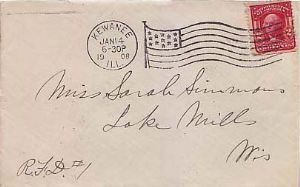 KEWANEE
JAN 14
6-30P
1908
ILL.
2
Miss Sarah Simmons
Lake Mills
Wis
R.F.D. #1